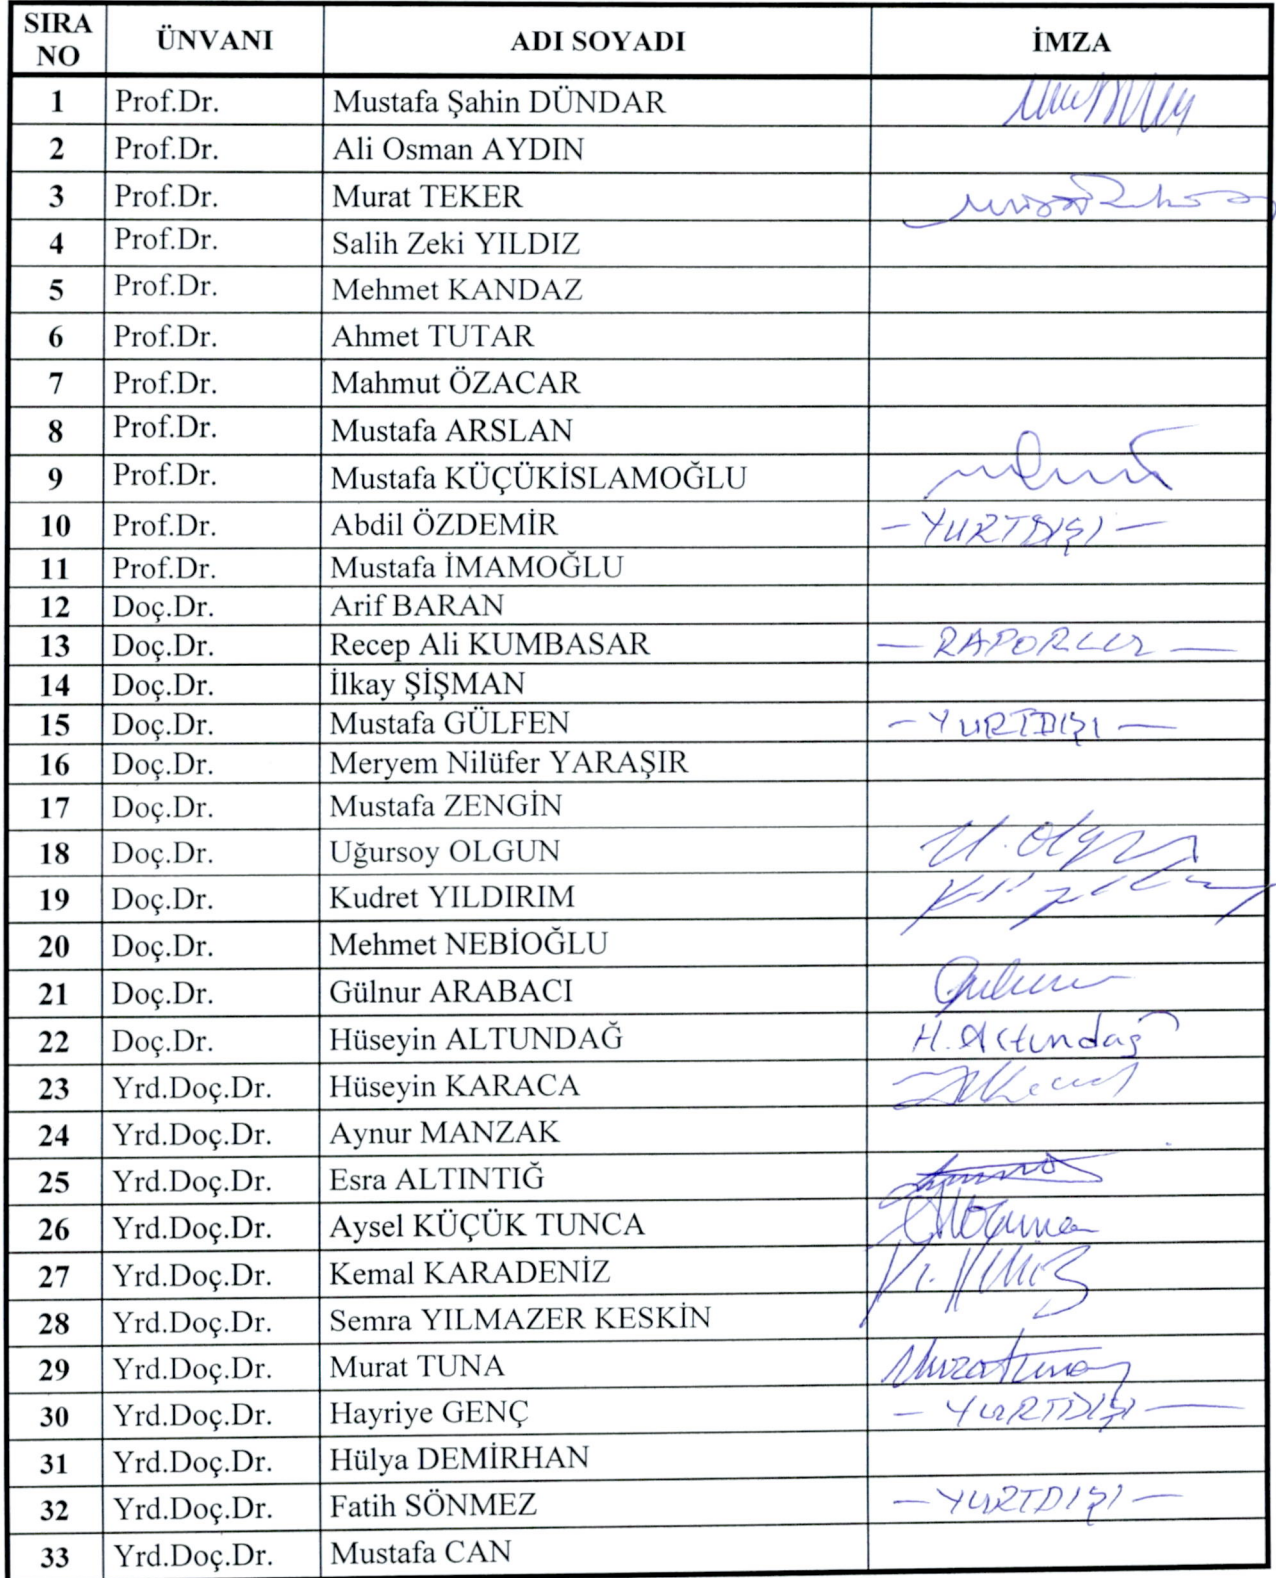 SIRA NO ÜNVANI ADI SOYADI İMZA
1 Prof.Dr. Mustafa Şahin DÜNDAR
2 Prof.Dr. Ali Osman AYDIN
3 Prof.Dr. Murat TEKER
4 Prof.Dr. Salih Zeki YILDIZ
5 Prof.Dr. Mehmet KANDAZ
6 Prof.Dr. Ahmet TUTAR
7 Prof.Dr. Mahmut ÖZACAR
8 Prof.Dr. Mustafa ARSLAN
9 Prof.Dr. Mustafa KÜÇÜKİSLAMOĞLU
10 Prof.Dr. Abdil ÖZDEMİR - YURTDIŞI -
11 Prof.Dr. Mustafa İMAMOĞLU
12 Doç.Dr. Arif BARAN
13 Doç.Dr. Recep Ali KUMBASAR - RAPORLU -
14 Doç.Dr. İlkay ŞİŞMAN
15 Doç.Dr. Mustafa GÜLFEN - YURTDIŞI -
16 Doç.Dr. Meryem Nilüfer YARAŞIR
17 Doç.Dr. Mustafa ZENGİN
18 Doç.Dr. Uğursoy OLGUN U. Olgun
19 Doç.Dr. Kudret YILDIRIM
20 Doç.Dr. Mehmet NEBİOĞLU
21 Doç.Dr. Gülnur ARABACI
22 Doç.Dr. Hüseyin ALTUNDAĞ H. Altundağ
23 Yrd.Doç.Dr. Hüseyin KARACA
24 Yrd.Doç.Dr. Aynur MANZAK
25 Yrd.Doç.Dr. Esra ALTINTIĞ
26 Yrd.Doç.Dr. Aysel KÜÇÜK TUNCA
27 Yrd.Doç.Dr. Kemal KARADENİZ
28 Yrd.Doç.Dr. Semra YILMAZER KESKİN
29 Yrd.Doç.Dr. Murat TUNA
30 Yrd.Doç.Dr. Hayriye GENÇ - YURTDIŞI -
31 Yrd.Doç.Dr. Hülya DEMİRHAN
32 Yrd.Doç.Dr. Fatih SÖNMEZ - YURTDIŞI -
33 Yrd.Doç.Dr. Mustafa CAN